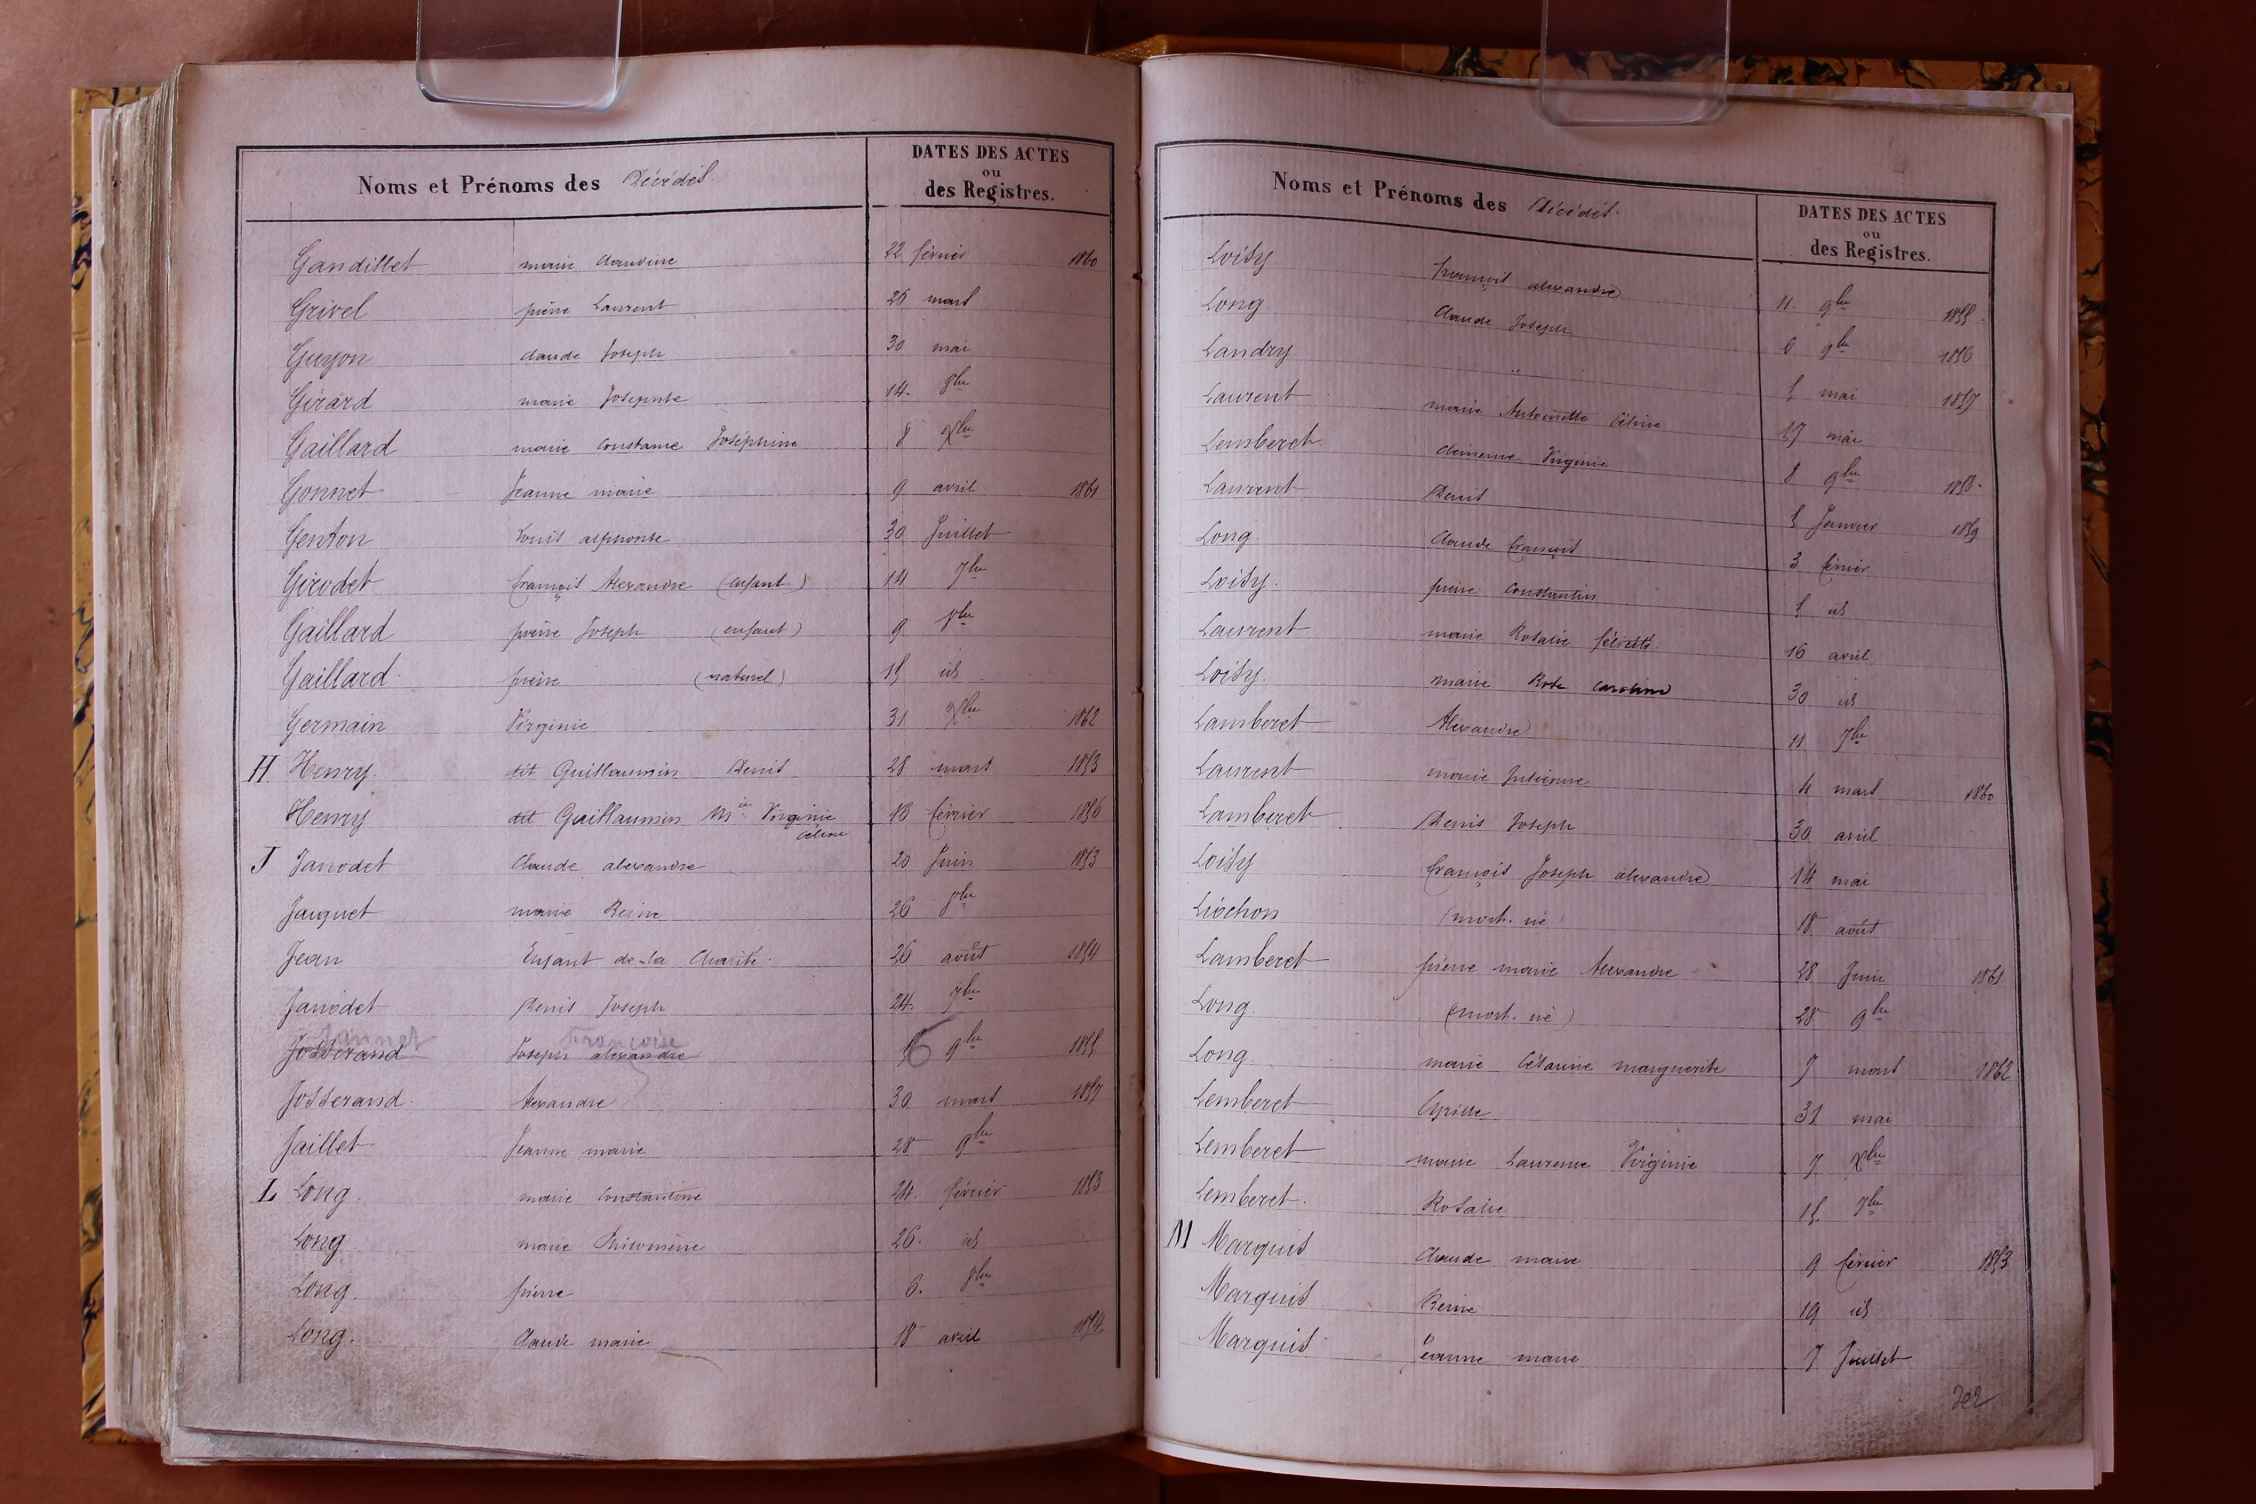 Noms et Prénoms des Décédés.
DATES DES ACTES
ou
des Registres.
Gandillet marie claudine 22 février 1860
Grivel pierre Laurent 26 mars
Guyon claude Joseph 30 mai
Girard marie Josephte 14. 8bre
Gaillard marie constance Joséphine 8 Xbre
Gonnet Jeanne marie 9 avril 1861
Genton Louis alphonse 30 Juillet
Girodet françois Alexandre (enfant) 14 7bre
Gaillard pierre Joseph (enfant) 9 8bre
Gaillard pierre (naturel) 15 id
Germain Virginie 31 Xbre 1862
H Henry dit Guillaumin Denis 28 mars 1853
Henry dit Guillaumin Mie Virginie 13 février 1856
céline
J Janodet Claude alexandre 20 Juin 1853
Jacquet marie Reine 26 8bre
Jean Enfant de la Charité 26 août 1854
Janodet Denis Joseph 24. 7bre
Jannet françoise
Josserand Joseph alexandre 6 9bre 1855
Josserand Alexandre 30 mars 1857
Jaillet Jeanne marie 28 9bre
L Long marie constantine 24. février 1853
Long marie Philomène 26. id
Long. pierre 6. 8bre
Long. Claude marie 18 avril 1854
Noms et Prénoms des Décédés.
DATES DES ACTES
ou
des Registres.
Loisy françois alexandre 11. 9bre 1855.
Long Claude Joseph 6 9bre 1856
Landry " 5 mai 1857
Laurent marie Antoinette Céline 17 mai
Lemberet clémence Virginie 8 9bre 1858.
Laurent Denis 5 Janvier 1859
Long Claude françois 3 février
Loisy. pierre constantin 5 id
Laurent marie Rosalie félicité 16 avril
Loisy. marie Rose caroline 30 id
Lamberet Alexandre 11 7bre
Laurent marie Julienne 4 mars 1860
Lamberet Denis Joseph 30 avril
Loisy françois Joseph alexandre 14 mai
Liochon (mort-né) 18 août
Lamberet pierre marie Alexandre 28 Juin 1861
Long (mort-né) 28 9bre
Long marie Césarine marguerite 7 mars 1862
Lemberet Cyrille 31 mai
Lemberet marie Laurence Virginie 7 Xbre
Lemberet. Rosalie 15 7bre
M Marquis Claude marie 9 février 1853
Marquis Reine 19 id
Marquis Jeanne marie 7 Juillet